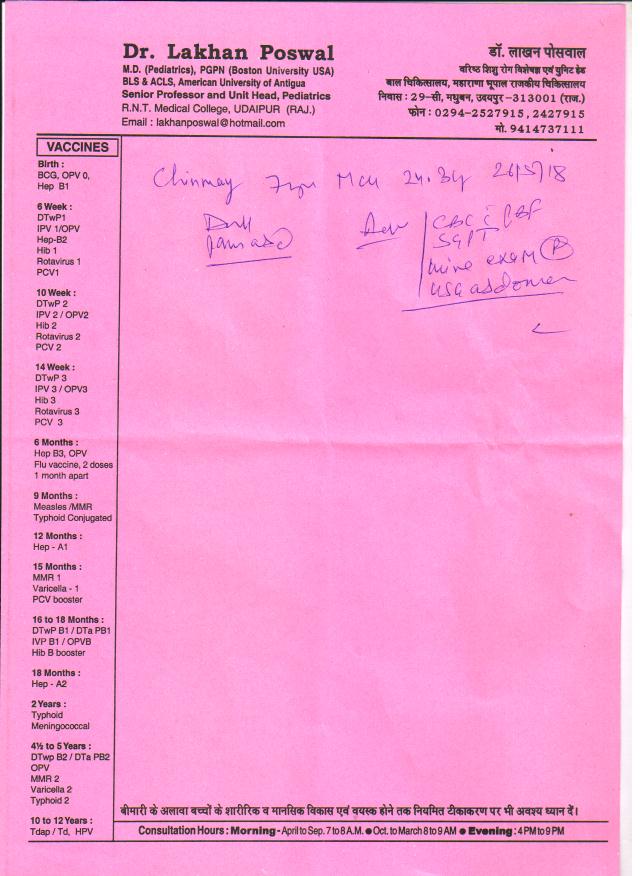 Dr. Lakhan Poswal
M.D. (Pediatrics), PGPN (Boston University USA)
BLS & ACLS, American University of Antigua
Senior Professor and Unit Head, Pediatrics
R.N.T. Medical College, UDAIPUR (RAJ.)
Email : lakhanposwal@hotmail.com
डॉ. लाखन पोसवाल
वरिष्ठ शिशु रोग विशेषज्ञ एवं युनिट हेड
बाल चिकित्सालय, महाराणा भूपाल राजकीय चिकित्सालय
निवास : 29-सी, मधुबन, उदयपुर-313001 (राज.)
फोन : 0294-2527915, 2427915
मो. 9414737111
VACCINES
Birth :
BCG, OPV 0,
Hep B1
6 Week :
DTwP1
IPV 1/OPV
Hep-B2
Hib 1
Rotavirus 1
PCV1
10 Week :
DTwP 2
IPV 2 / OPV2
Hib 2
Rotavirus 2
PCV 2
14 Week :
DTwP 3
IPV 3 / OPV3
Hib 3
Rotavirus 3
PCV 3
6 Months :
Hep B3, OPV
Flu vaccine, 2 doses
1 month apart
9 Months :
Measles /MMR
Typhoid Conjugated
12 Months :
Hep - A1
15 Months :
MMR 1
Varicella - 1
PCV booster
16 to 18 Months :
DTwP B1 / DTa PB1
IVP B1 / OPVB
Hib B booster
18 Months :
Hep - A2
2 Years :
Typhoid
Meningococcal
4½ to 5 Years :
DTwp B2 / DTa PB2
OPV
MMR 2
Varicella 2
Typhoid 2
10 to 12 Years :
Tdap / Td, HPV
Chinmay 26/5/18
CBC c̄ PBF
SGPT
exam
USG abdomen
बीमारी के अलावा बच्चों के शारीरिक व मानसिक विकास एवं वयस्क होने तक नियमित टीकाकरण पर भी अवश्य ध्यान दें।
Consultation Hours : Morning - April to Sep. 7 to 8 A.M. ● Oct. to March 8 to 9 AM ● Evening : 4 PM to 9 PM